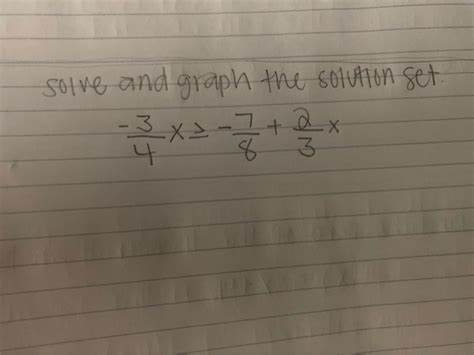 solve and graph the solution set.
-3/4 x ≥ -7/8 + 2/3 x